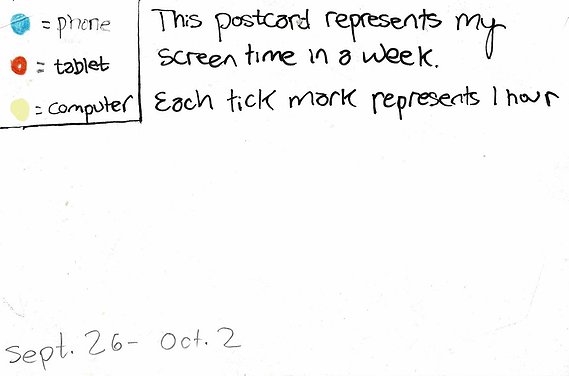 = phone
= tablet
= computer
This postcard represents my
screen time in a week.
Each tick mark represents 1 hour
Sept. 26- Oct. 2